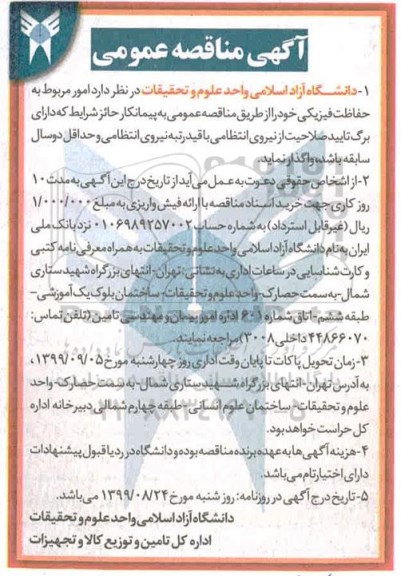 آگهی مناقصه عمومی
۱-دانشگاه آزاد اسلامی واحد علوم و تحقیقات در نظر دارد امور مربوط به
حفاظت فیزیکی خود را از طریق مناقصه عمومی به پیمانکار حائز شرایط که دارای
برگ تایید صلاحیت از نیروی انتظامی با قید رتبه نیروی انتظامی و حداقل دو سال
سابقه باشد، واگذار نماید.
۲- از اشخاص حقوقی دعوت به عمل می آید از تاریخ درج این آگهی به مدت ۱۰
روز کاری جهت خرید اسناد مناقصه با ارائه فیش واریزی به مبلغ ۱/۰۰۰/۰۰۰
ریال (غیرقابل استرداد) به شماره حساب ۰۱۰۶۹۸۹۲۵۷۰۰۲ نزد بانک ملی
ایران به نام دانشگاه آزاد اسلامی واحد علوم و تحقیقات به همراه معرفی نامه کتبی
و کارت شناسایی در ساعات اداری به نشانی: تهران- انتهای بزرگراه شهید ستاری
شمال- به سمت حصارک- واحد علوم و تحقیقات- ساختمان بلوک یک آموزشی-
طبقه ششم- اتاق شماره ۶۰۱ اداره امور پیمان و مهندسی تامین (تلفن تماس:
۴۴۸۶۶۰۷۰ داخلی ۳۰۰۸) مراجعه نمایند.
۳- زمان تحویل پاکات تا پایان وقت اداری روز چهارشنبه مورخ ۱۳۹۹/۰۹/۰۵،
به آدرس تهران- انتهای بزرگراه شهید ستاری شمال- به سمت حصارک- واحد
علوم و تحقیقات - ساختمان علوم انسانی- طبقه چهارم شمالی دبیرخانه اداره
کل حراست خواهد بود.
۴- هزینه آگهی ها به عهده برنده مناقصه بوده و دانشگاه در رد یا قبول پیشنهادات
دارای اختیار تام می باشد.
۵- تاریخ درج آگهی در روزنامه: روز شنبه مورخ ۱۳۹۹/۰۸/۲۴ می باشد.
دانشگاه آزاد اسلامی واحد علوم و تحقیقات
اداره کل تامین و توزیع کالا و تجهیزات